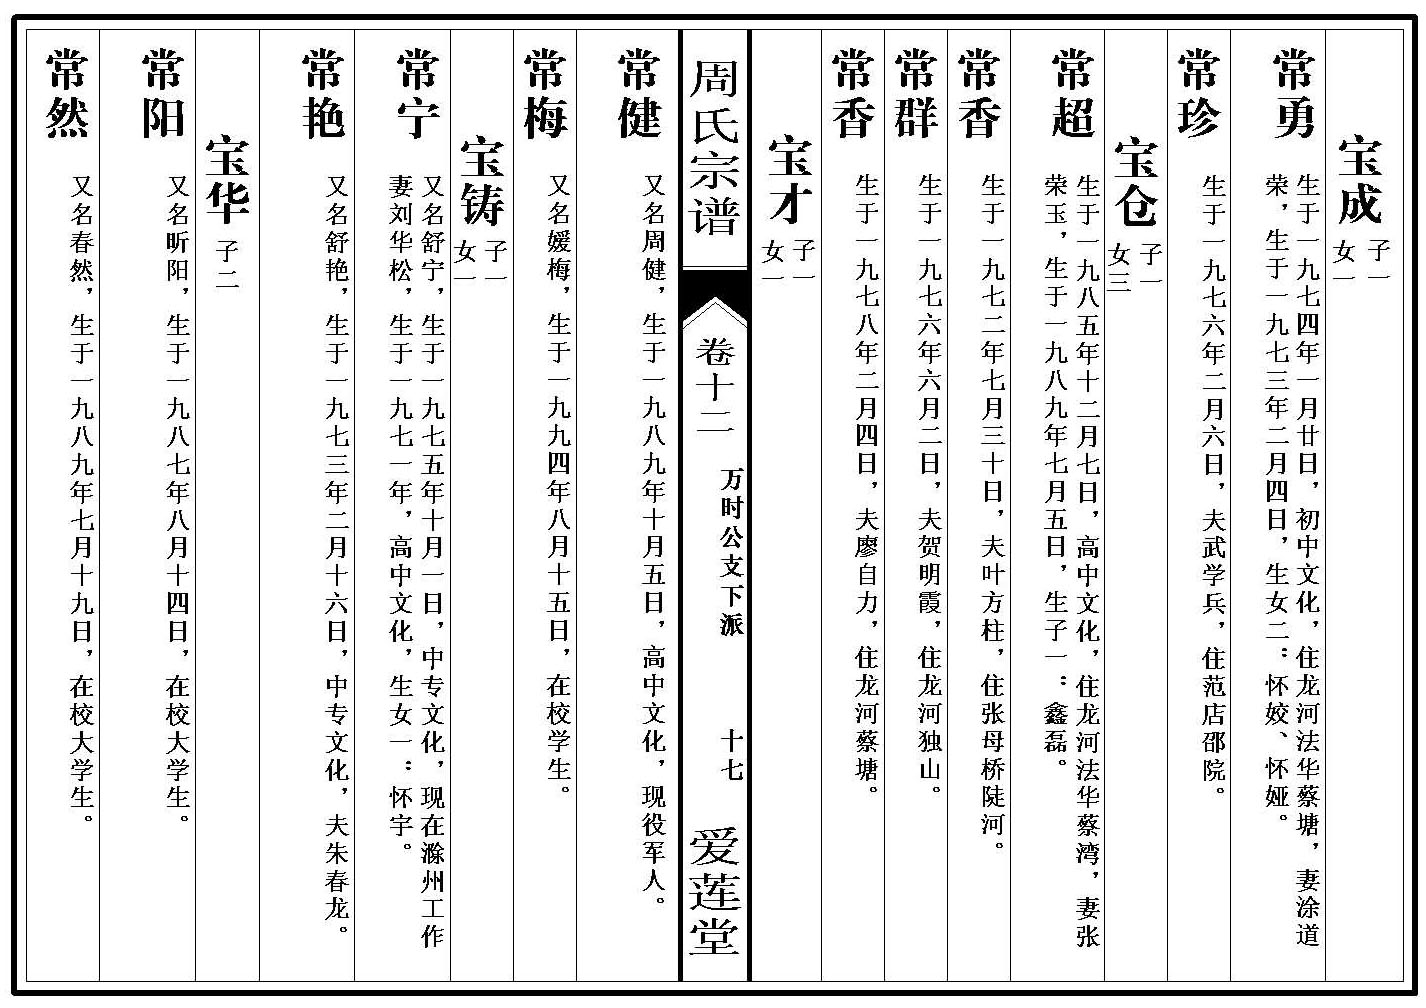 宝成
子一
女一
常勇
生于一九七四年一月廿日，初中文化，住龙河法华蔡塘，妻涂道
荣，生于一九七三年二月四日，生女二：怀姣、怀娅。
常珍
生于一九七六年二月六日，夫武学兵，住范店邵院。
宝仓
子一
女三
常超
生于一九八五年十二月七日，高中文化，住龙河法华蔡湾，妻张
荣玉，生于一九八九年七月五日，生子一：鑫磊。
常香
生于一九七二年七月三十日，夫叶方柱，住张母桥陡河。
常群
生于一九七六年六月二日，夫贺明霞，住龙河独山。
常香
生于一九七八年二月四日，夫廖自力，住龙河蔡塘。
宝才
子一
女一
周氏宗谱
卷十二
万时公支下派
十七
爱莲堂
常健
又名周健，生于一九八九年十月五日，高中文化，现役军人。
常梅
又名媛梅，生于一九九四年八月十五日，在校学生。
宝铸
子一
女一
常宁
又名舒宁，生于一九七五年十月一日，中专文化，现在滁州工作
妻刘华松，生于一九七一年，高中文化，生女一：怀宇。
常艳
又名舒艳，生于一九七三年二月十六日，中专文化，夫朱春龙。
宝华
子二
常阳
又名昕阳，生于一九八七年八月十四日，在校大学生。
常然
又名春然，生于一九八九年七月十九日，在校大学生。